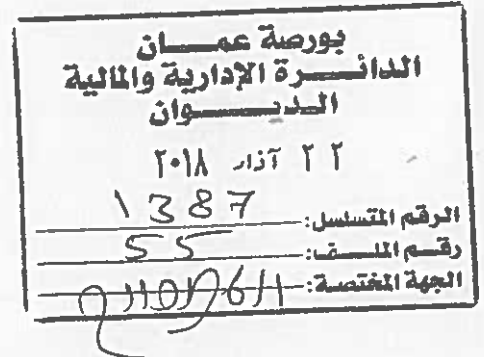 بورصة عمـــان
الدائـــرة الإدارية والمالية
الديـــــوان
٢٢ آذار ٢٠١٨
الرقم المتسلسل: 1387
رقـــم الملـــف: 55
الجهة المختصة: